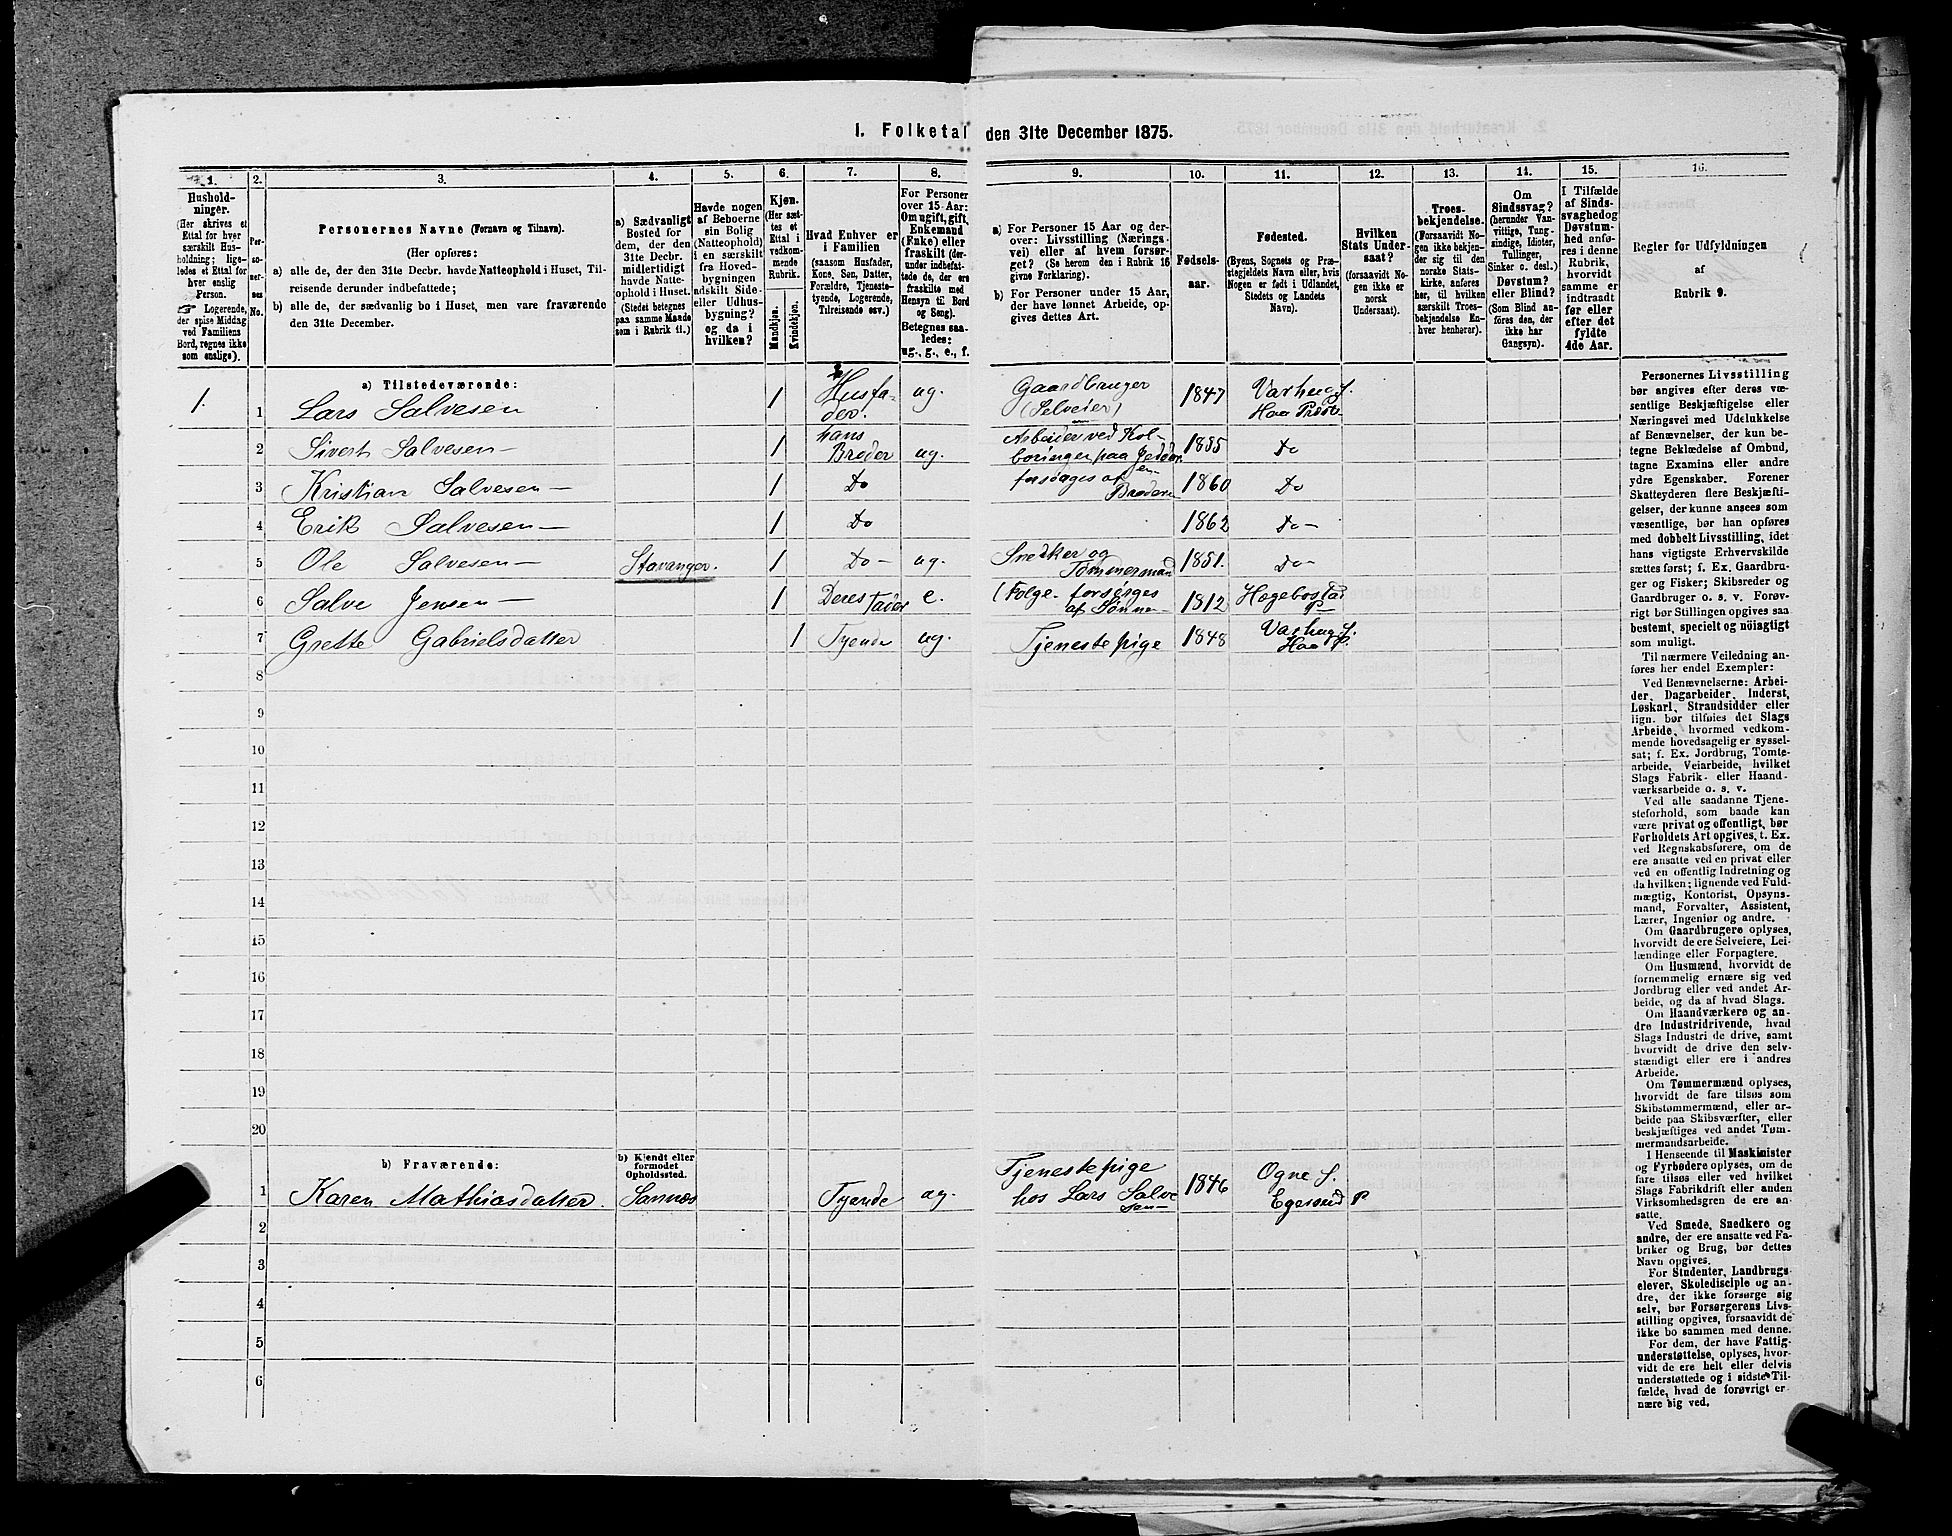 1. Folketal den 31te December 1875.
1.
Hushold-
ninger.
(Her skrives et
Ettal for hver
særskilt Hus-
holdning; lige-
ledes et Ettal for
hver enslig
Person.
☞ Logerende,
der spise Middag
ved Familiens
Bord, regnes ikke
som enslige).
2.
Per-
so-
ner-
nes
No.
3.
Personernes Navne (Fornavn og Tilnavn).
(Her opføres:
a) alle de, der den 31te Decbr. havde Natteophold i Huset, Til-
reisende derunder indbefattede;
b) alle de, der sædvanlig bo i Huset, men vare fraværende
den 31te December.
4.
a) Sædvanligt
Bosted for
dem, der den
31te Decbr.
midlertidigt
havde Natte-
ophold i Huset.
(Stedet betegnes
paa samme Maade
som i Rubrik 11.)
5.
Havde nogen
af Beboerne
sin Bolig
(Natteophold)
i en særskilt
fra Hoved-
bygningen
adskilt Side-
eller Udhus-
bygning?
og da i
hvilken?
6.
Kjøn.
(Her sæt-
tes et
Ettal i
vedkom-
mende
Rubrik.
Mandkjøn.
Kvindekjøn.
7.
Hvad Enhver er
i Familien
(saasom Husfader,
Kone, Søn, Datter,
Forældre, Tjeneste-
tyende, Logerende,
Tilreisende osv.)
8.
For Personer
over 15 Aar:
Om ugift, gift,
Enkemand
(Enke) eller
fraskilt (der-
under indbefat-
tede de, der ere
fraskilte med
Hensyn til Bord
og Seng).
Betegnes saa-
ledes:
ug., g., e., f.
9.
a) For Personer 15 Aar og der-
over: Livsstilling (Nærings-
vei) eller af hvem forsør-
get? (Se herom den i Rubrik 16
givne Forklaring).
b) For Personer under 15 Aar,
der have lønnet Arbeide, op-
gives dettes Art.
10.
Fødsels-
aar.
11.
Fødested.
(Byens, Sognets og Præ-
stegjeldets Navn eller, hvis
Nogen er født i Udlandet,
Stedets og Landets
Navn).
12.
Hvilken
Stats Under-
saat?
(forsaavidt No-
gen ikke er
norsk
Undersaat).
13.
Troes-
bekjendelse.
(Forsaavidt No-
gen ikke bekjen-
der sig til den
norske Stats-
kirke, anføres
her, til hvilken
særskilt Troes-
bekjendelse En-
hver henhører).
14.
Om
Sindssvag?
(herunder Van-
vittige, Tung-
sindige, Idioter,
Sinker o. desl.)
Døvstum?
eller Blind?
(Som Blind an-
føres den, der
ikke har
Gangsyn).
15.
I Tilfælde
af Sinds-
svaghed og
Døvstum-
hed anfø-
res i denne
Rubrik,
hvorvidt
samme er
indtraadt
før eller
efter det
fyldte
4de Aar.
16.
Regler for Udfyldningen
af
Rubrik 9.
a) Tilstedeværende:
1. 1 Lars Salvesen 1 Husfa-
der. ug. Gaardbruger
(Selveier) 1847 Varhug S.
Haa Præst.
2 Sivert Salvesen – 1 hans
Broder ug. Arbeider ved Kol-
boringen paa Jedder-
en 1855 Do
3 Kristian Salvesen – 1 Do forsørges af
Broderen 1860 Do
4 Erik Salvesen – 1 Do 1862 Do –
5 Ole Salvesen – Stavanger. 1 Do – ug. Snedker og
Tømmermand 1851. Do –
6 Salve Jensen – 1 Deres Fader e. (Folge- forsørges
af Sønne – 1812 Hægebostad
P
7 Grette Gabrielsdatter 1 Tyende ug. Tjenestepige 1848 Varhug S.
Haa P.
8
9
10
11
12
13
14
15
16
17
18
19
20
b) Fraværende:
b) Kjendt eller
formodet
Opholdssted.
1 Karen Mathiasdatter. Sannæs Tyende ug. Tjenestepige
hos Lars Salve
sen – 1846 Ogne S.
Egersund P
2
3
4
5
6
Personernes Livsstilling
bør angives efter deres væ-
sentlige Beskjæftigelse eller
Næringsvei med Udelukkelse
af Benævnelser, der kun be-
tegne Beklædelse af Ombud,
tagne Examina eller andre
ydre Egenskaber. Forener
Skatteyderen flere Beskjæfti-
gelser, der kunne ansees som
væsentlige, bør han opføres
med dobbelt Livsstilling, idet
hans vigtigste Erhvervskilde
sættes først; f. Ex. Gaardbru-
ger og Fisker; Skibsreder og
Gaardbruger o. s. v. Forøv-
rigt bør Stillingen opgives saa
bestemt, specielt og nøiagtigt
som muligt.
Til nærmere Veiledning an-
føres her endel Exempler:
Ved Benævnelserne: Arbei-
der, Dagarbeider, Inderst,
Løskarl, Strandsidder eller
lign. bør tilføies det Slags
Arbeide, hvormed vedkom-
mende hovedsagelig er syssel-
sat; f. Ex. Jordbrug, Tomte-
arbeide, Veiarbeide, hvilket
Slags Fabrik- eller Haand-
værksarbeide o. s. v.
Ved alle saadanne Tjene-
steforhold, som baade kan
være privat og offentligt, bør
Forholdets Art opgives, t. Ex.
ved Regnskabsførere, om de
ere ansatte ved en privat eller
ved en offentlig Indretning og
da hvilken; lignende ved Fuld-
mægtig, Kontorist, Opsyns-
mand, Forvalter, Assistent,
Lærer, Ingeniør og andre.
Om Gaardbrugere oplyses,
hvorvidt de ere Selveiere, Lei-
lændinge eller Forpagtere.
Om Husmænd, hvorvidt de
fornemmelig ernære sig ved
Jordbrug eller ved andet Ar-
beide, og da af hvad Slags.
Om Haandværkere og an-
dre Industridrivende, hvad
Slags Industri de drive, samt
hvorvidt de drive den selv-
stændigt eller ere i andres
Arbeide.
Om Tømmermænd oplyses,
hvorvidt de fare tilsøs som
Skibstømmermænd, eller ar-
beide paa Skibsværfter, eller
beskjæftiges ved andet Tøm-
mermandsarbeide.
I Henseende til Maskinister
og Fyrbødere oplyses, om de
fare tilsøs eller ved hvilket
Slags Fabrikdrift eller anden
Virksomhedsgren de ere an-
satte.
Ved Smede, Snedkere og
andre, der ere ansatte ved Fa-
briker og Brug, bør dettes
Navn opgives.
For Studenter, Landbrugs-
elever, Skoledisciple og an-
dre, der ikke forsørge sig
selv, bør Forsørgerens Livs-
stilling opgives, forsaavidt de
ikke bo sammen med denne.
For dem, der have Fattig-
understøttelse, oplyses, hvor-
vidt de ere helt eller delvis
understøttede og i sidste Til-
fælde, hvad de forøvrigt er-
nære sig ved.